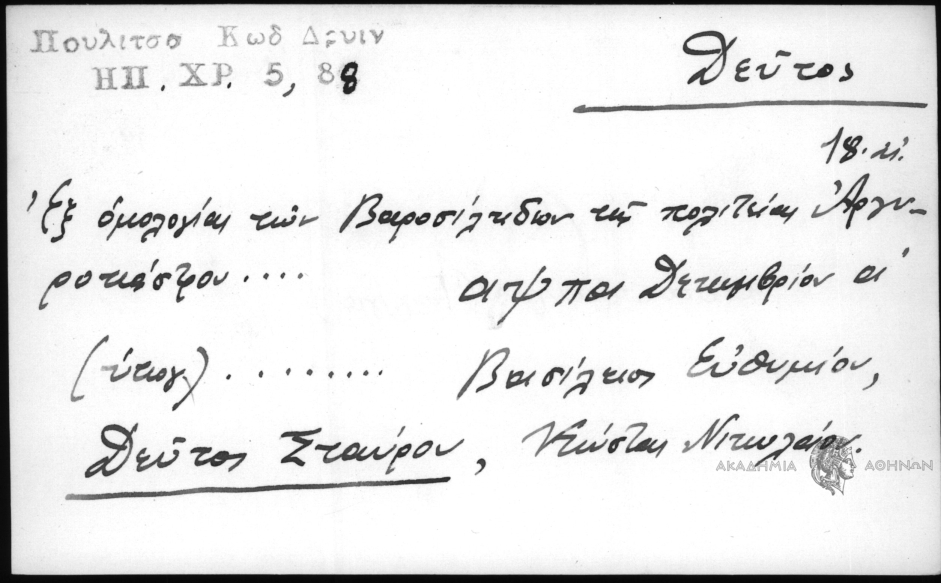 Πουλιτσα Κωδ Δρυιν
ΗΠ. ΧΡ. 5, 88
Δεῦτος
18.αἰ.
Ἐξ ὁμολογίας τῶν Βαροσιλήδων τῆς πολιτείας Ἀργυ-
ροκάστρου ....
αψπα Δεκεμβρίου α΄
(ὑπογ) .........
Βασίλειος Εὐθυμίου,
Δεῦτος Σταύρου, Κώστας Νικολάου.
ΑΚΑΔΗΜΙΑ ΑΘΗΝΩΝ